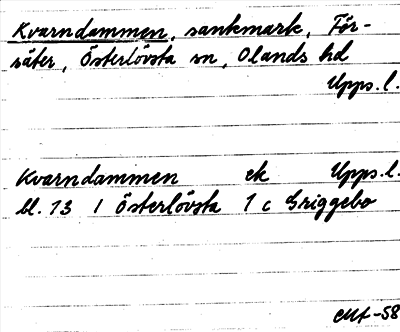 Kvarndammen, sankmark, För-
säter, Österlövsta sn, Olands hd
Upps. l.
Kvarndammen ek Upps. l.
bl. 13 I Österlövsta 1 c Griggebo